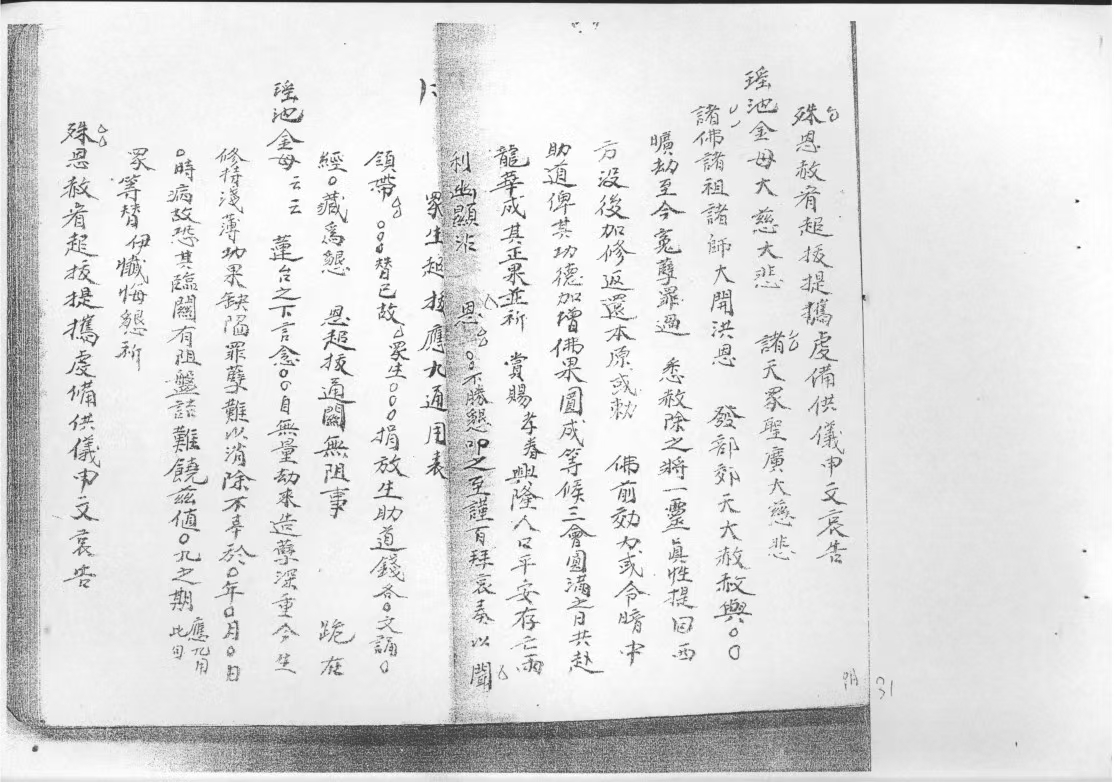 殊恩赦宥超拔提攜虔備供儀申文哀告
瑶池金母大慈大悲 諸天眾聖廣大慈悲
諸佛諸祖諸師大開洪恩 發部郊天大赦赦與○○
曠劫至今冤孽罪過 悉赦除之將一靈真性提囬西
方没後加修返還本原或勅 佛前効力或令暗中
助道俾其功德加增佛果圓成等候三會圓滿之日共赴
龍華成其正果並祈 賞賜孝眷興隆人口平安存亡兩
利幽顯沾 恩 ○不勝懇叩之至謹百拜哀奏以聞
眾生超拔應九通用表
領帶 ○○○替已故 眾生○○○捐放生助道錢各○文誦○
經○藏為懇 恩超拔通關無阻事 跪在
瑶池金母云云 蓮台之下言念○○自無量劫来造孽深重今生
修持淺薄功果缺陷罪孽難以消除不幸於○年○月○日
○時病故恐其臨關有阻盤詰難饒兹值○九之期 應九用此句
眾等替伊懺悔懇祈
殊恩赦宥超拔提攜虔備供儀申文哀告
31